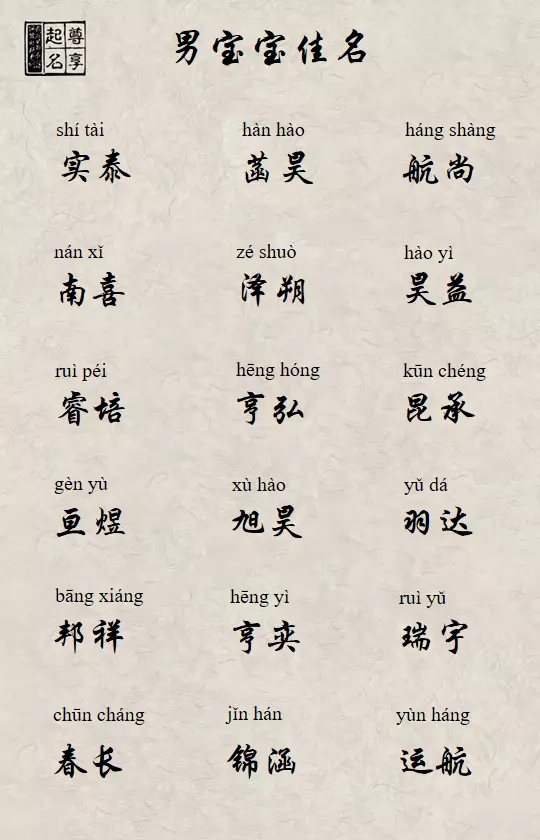 尊享
起名
男宝宝佳名
shí tài hàn hào háng shàng
实泰 菡昊 航尚
nán xǐ zé shuò hào yì
南喜 泽朔 昊益
ruì péi hēng hóng kūn chéng
睿培 亨弘 昆承
gèn yù xù hào yǔ dá
亘煜 旭昊 羽达
bāng xiáng hēng yì ruì yǔ
邦祥 亨奕 瑞宇
chūn cháng jǐn hán yùn háng
春长 锦涵 运航